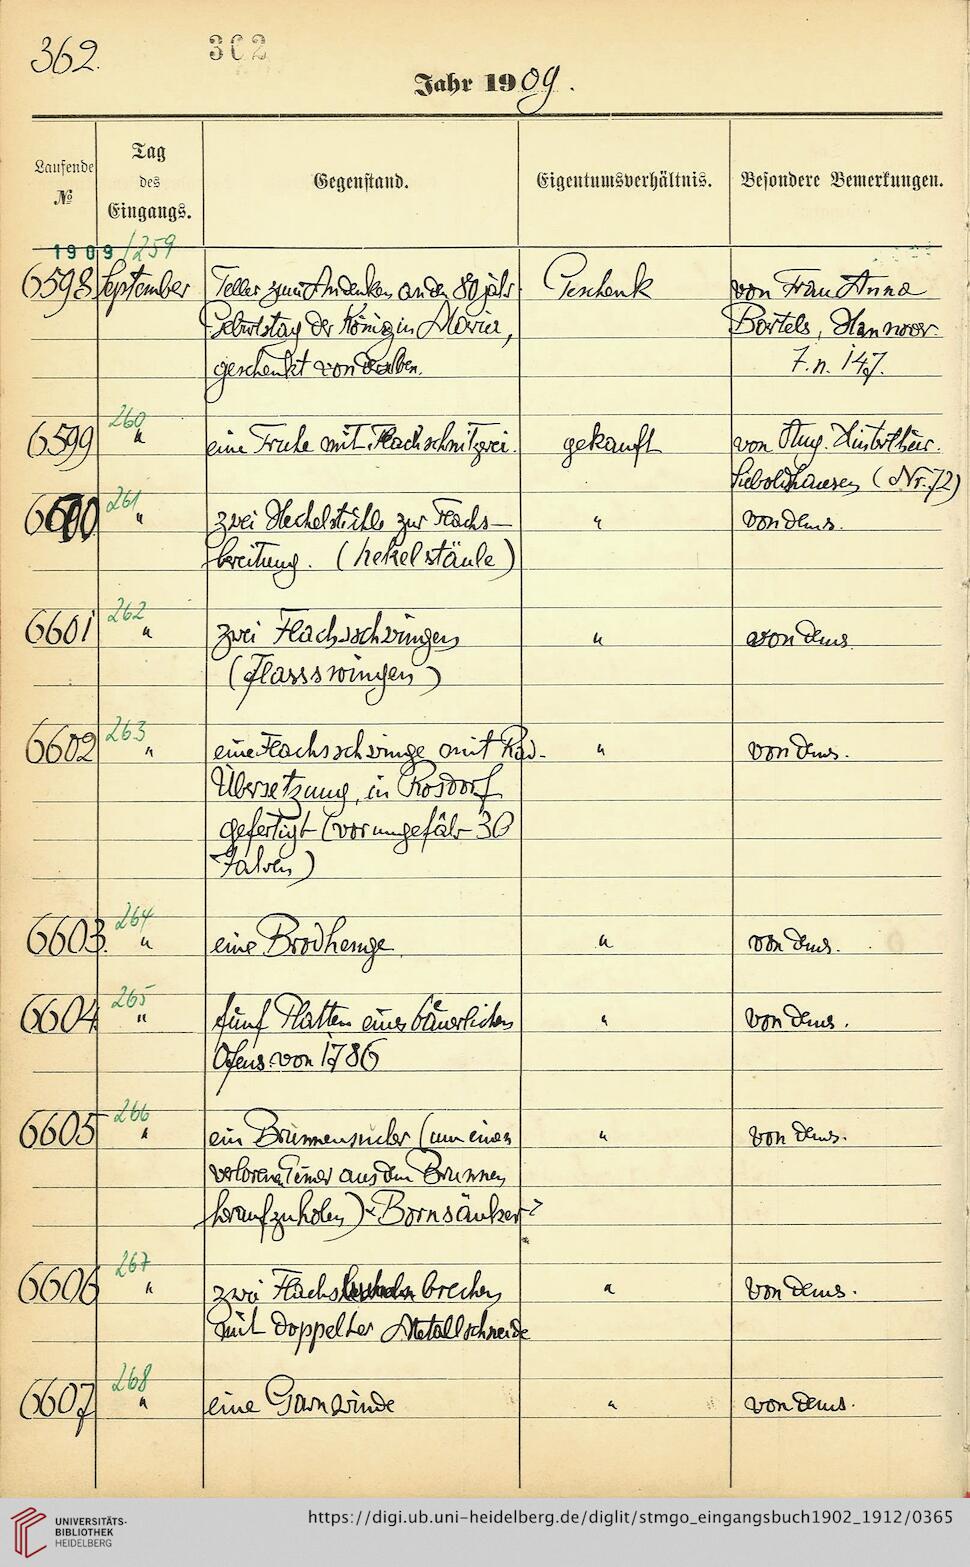 362.
302
Jahr 1909.
Laufende
№
Tag
des
Eingangs.
Gegenstand.
Eigentumsverhältnis.
Besondere Bemerkungen.
1909/259
6598 September Teller zum Andenken an den 80 jähr Geschenk von Frau Anna
Geburtstag der Königin Maria, Bartels, Hannover.
geschenkt von derselben. 147.
260
6599 " eine Truhe mit Flachschnitzerei. gekauft von Aug. Hinterthür.
Sieboldshausen (Nr. 72)
261
6600 " zwei Hechelstühle zur Flachs- " von dems.
bereitung. (hekelstäule)
262
6601 " zwei Flachsschwingen " von dems.
(flassswingen)
263
6602 " eine Flachsschwinge mit Rad- " von dems.
Übersetzung, in Rosdorf
gefertigt (vor ungefähr 30
Jahren)
264
6603. " eine Brodhenge. " von dems.
265
6604. " fünf Platten eines bäuerlichen " von dems.
Ofens von 1786
266
6605 " ein Brunnensucher (um einen " von dems.
verlorenen Eimer aus dem Brunnen
heraufzuholen) "Bornsäuker"
267
6606 " zwei Flachs brechen " von dems.
mit doppelter Metallschneide
268
6607 " eine Garnwinde " von dems.
UNIVERSITÄTS-
BIBLIOTHEK
HEIDELBERG
https://digi.ub.uni-heidelberg.de/diglit/stmgo_eingangsbuch1902_1912/0365